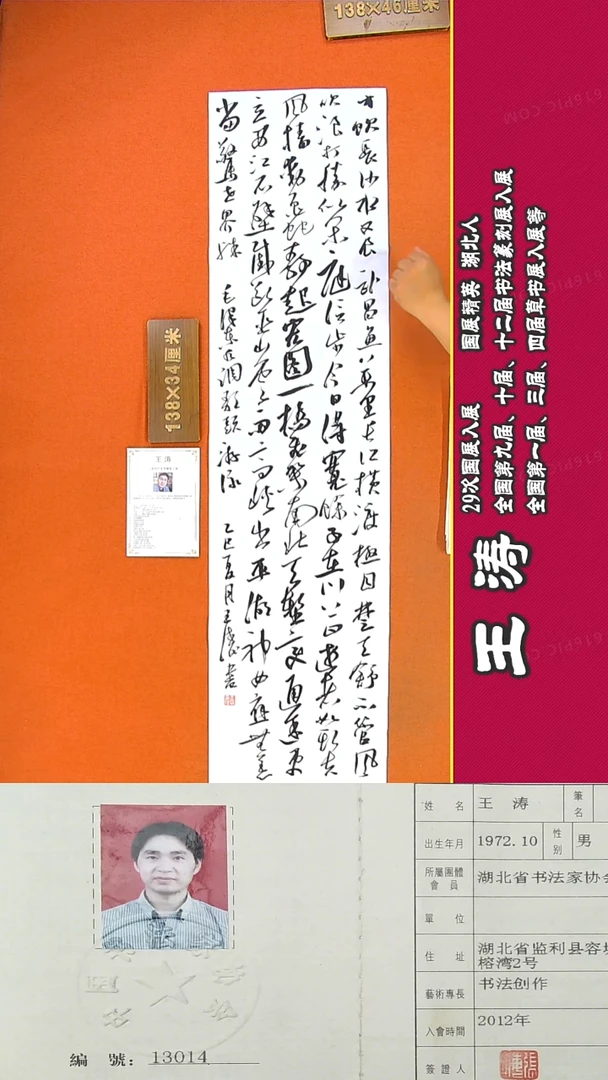 138×46厘米
才饮长沙水又食武昌鱼万里长江横渡极目楚天舒不管风
吹浪打胜似闲庭信步今日得宽馀子在川上曰逝者如斯夫
风樯动龟蛇静起宏图一桥飞架南北天堑变通途更
立西江石壁截断巫山云雨高峡出平湖神女应无恙
当惊世界殊 毛泽东水调歌头游泳 乙巳夏月王涛书
138×34厘米
王涛
王涛
29次国展入展 国展精英 湖北人
全国第九届、十届、十二届书法篆刻展入展
全国第一届、三届、四届草书展入展等
編號：13014
姓名 王涛 筆名
出生年月 1972.10 性别 男
所屬團體會員 湖北省书法家协会
單位
住址 湖北省监利县容城
榕湾2号
藝術專長 书法创作
入會時間 2012年
簽證人